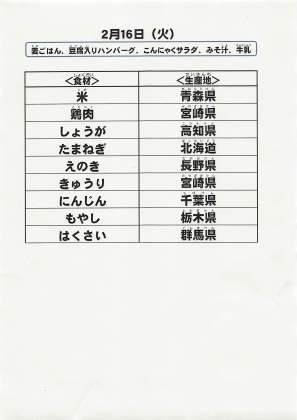 2月16日（火）
麦ごはん、豆腐入りハンバーグ、こんにゃくサラダ、みそ汁、牛乳
＜食材＞ ＜生産地＞
米 青森県
鶏肉 宮崎県
しょうが 高知県
たまねぎ 北海道
えのき 長野県
きゅうり 宮崎県
にんじん 千葉県
もやし 栃木県
はくさい 群馬県